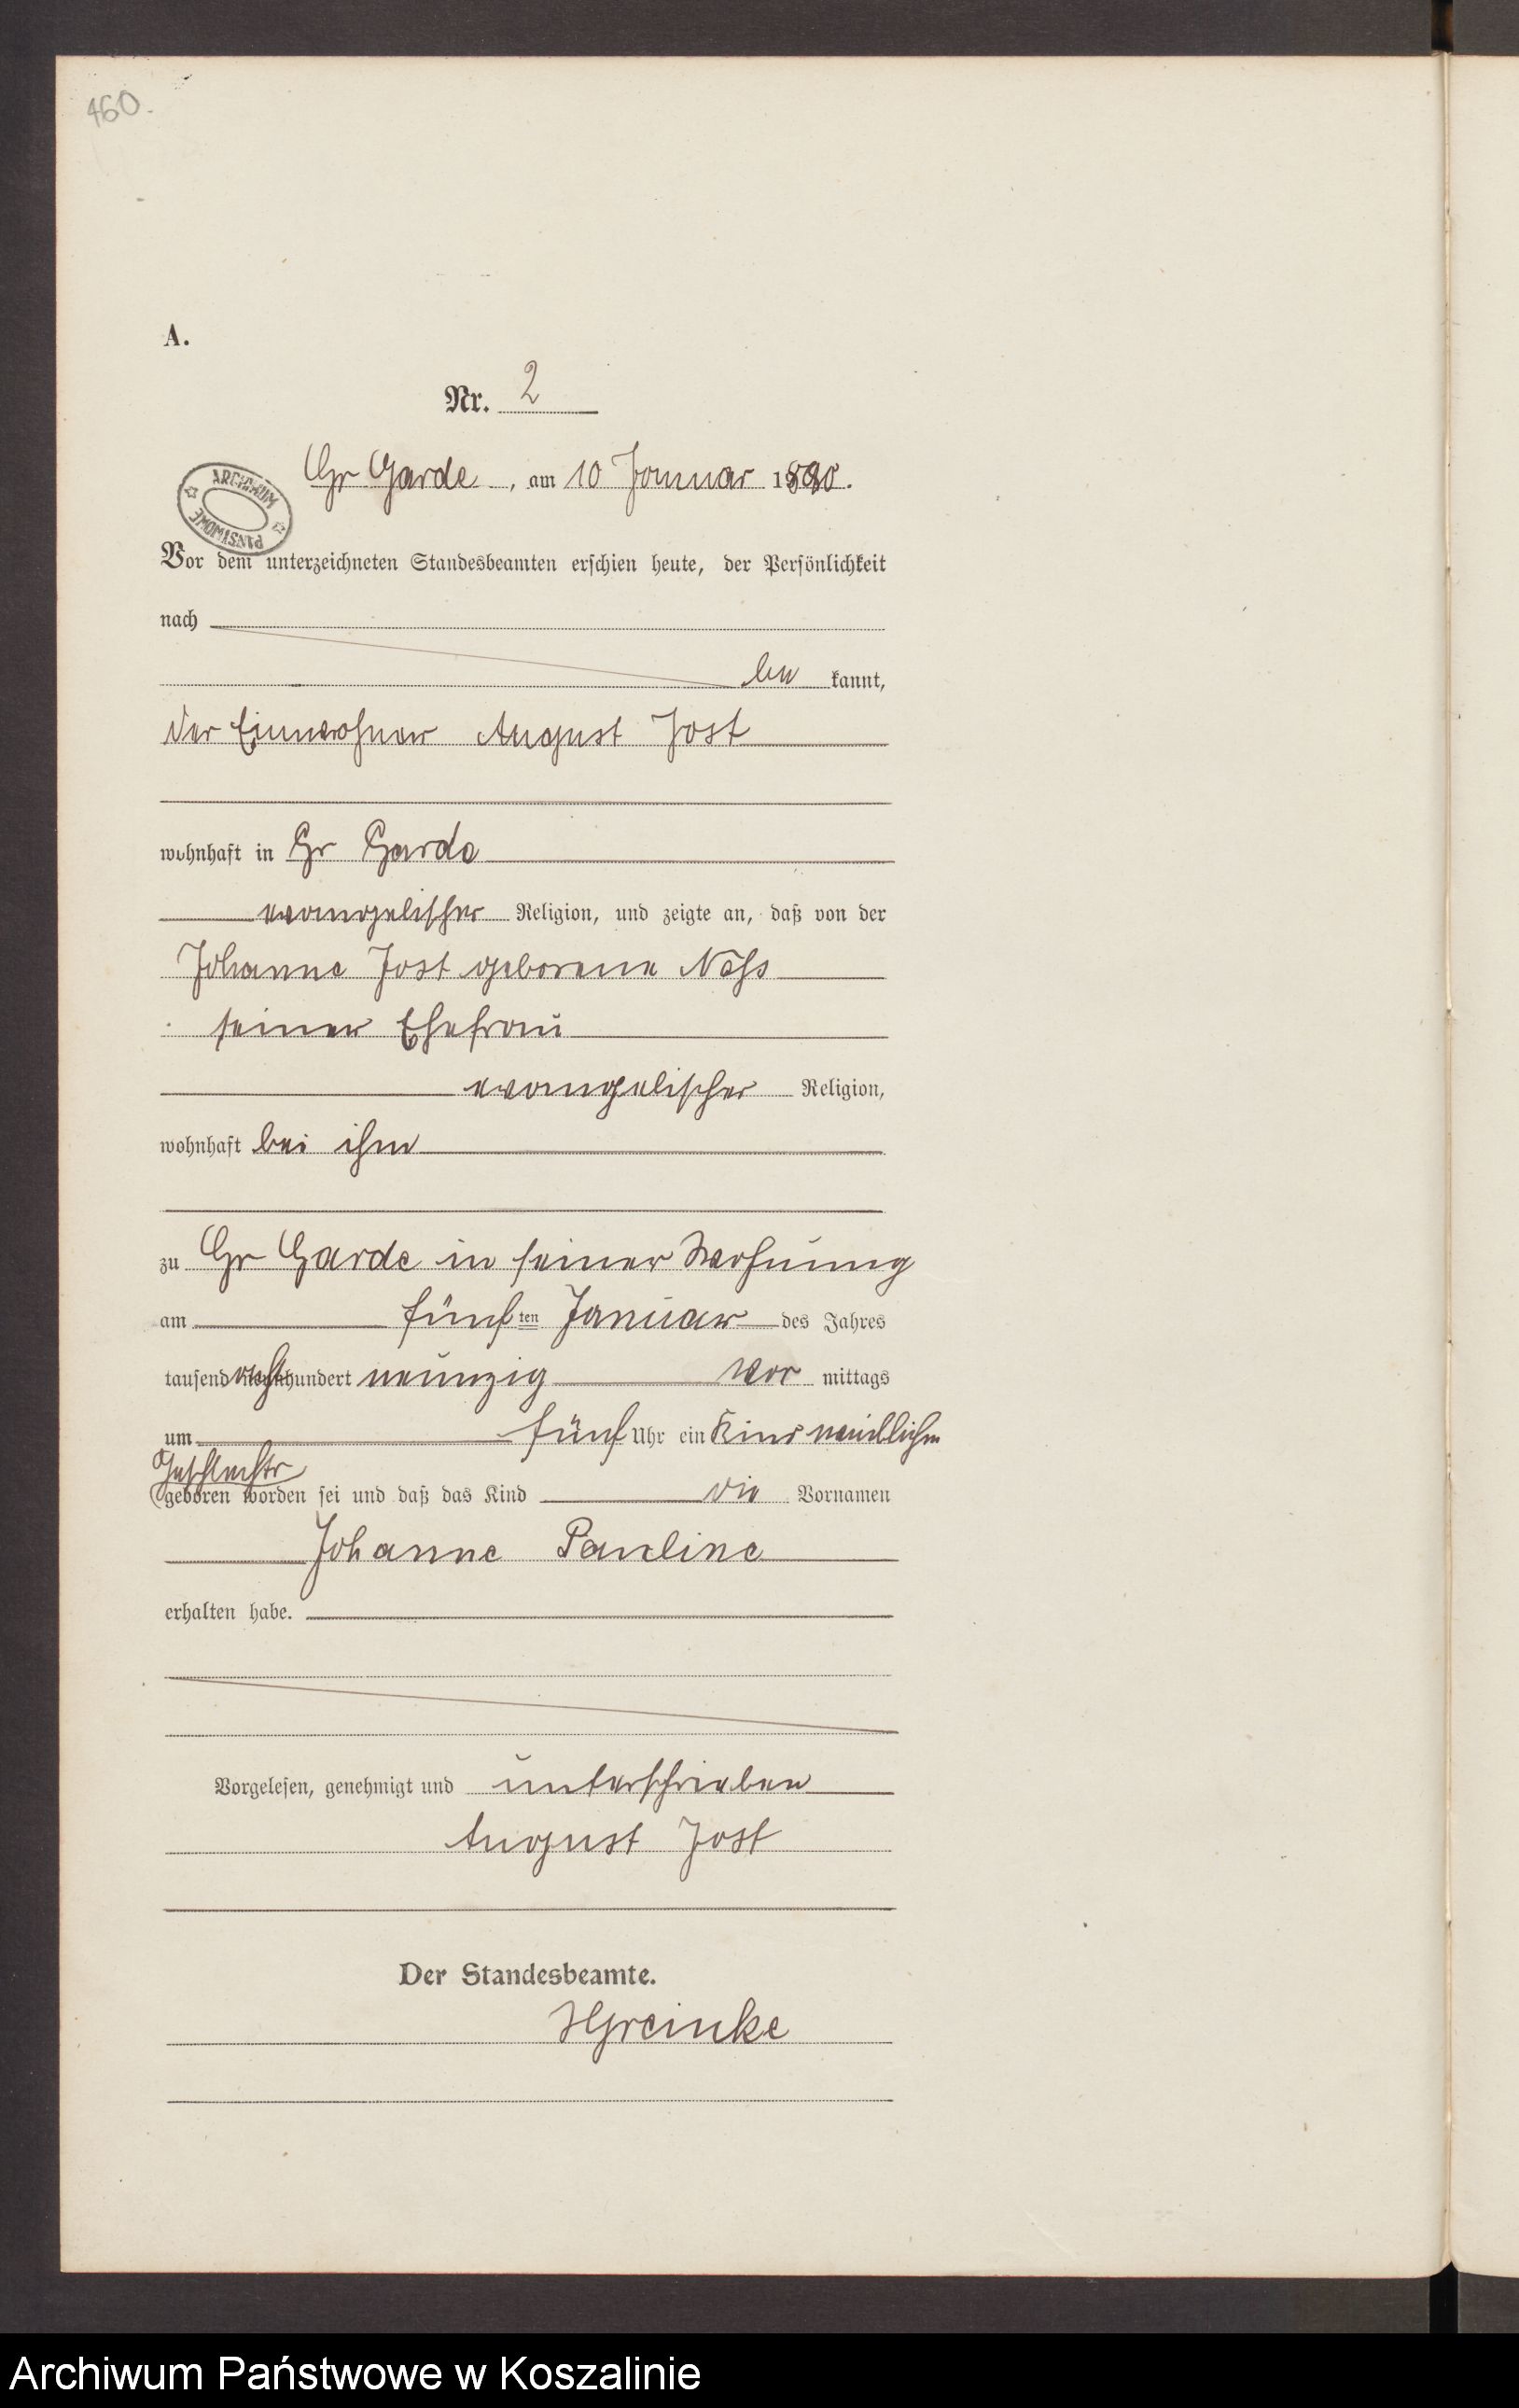 460.
A.
Nr. 2
Gr Garde, am 10 Januar 1890.
ARCHIWUM PAŃSTWOWE
Vor dem unterzeichneten Standesbeamten erschien heute, der Persönlichkeit
nach
be kannt,
der Einwohner August Jost
wohnhaft in Gr Garde
evangelischer Religion, und zeigte an, daß von der
Johanne Jost geborene Näss
seiner Ehefrau
evangelischer Religion,
wohnhaft bei ihm
zu Gr Garde in seiner Wohnung
am fünf ten Januar des Jahres
tausend acht hundert neunzig vor mittags
um fünf Uhr ein Kind weiblichen
Geschlechts
geboren worden sei und daß das Kind die Vornamen
Johanne Pauline
erhalten habe.
Vorgelesen, genehmigt und unterschrieben
August Jost
Der Standesbeamte.
HGreinke
Archiwum Państwowe w Koszalinie